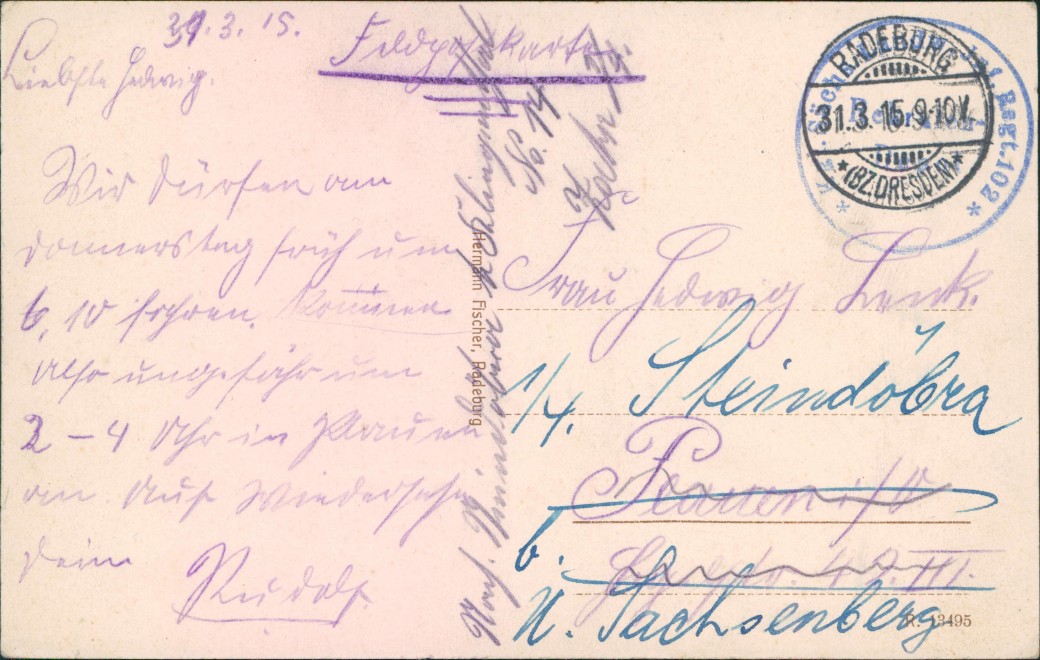 31.3.15.
Feldpostkarte
Liebste Hedwig.
Wir dürfen am
Donnerstag früh um
6,10 fahren. Kommen
also ungefähr um
2 – 4 Uhr in Plauen
an. Auf Wiedersehn
Dein
Rudolf.
Nach Steindöbra b. Klingenthal
No. 14
Hermann Fischer, Radeburg
RADEBURG
31.3.15.9-10V.
*(BZ.DRESDEN)*
Regt. 102 *
Frau Hedwig Lenk.
1/4. Steindöbra
Plauen i/V
b.
U. Sachsenberg
R. 13495